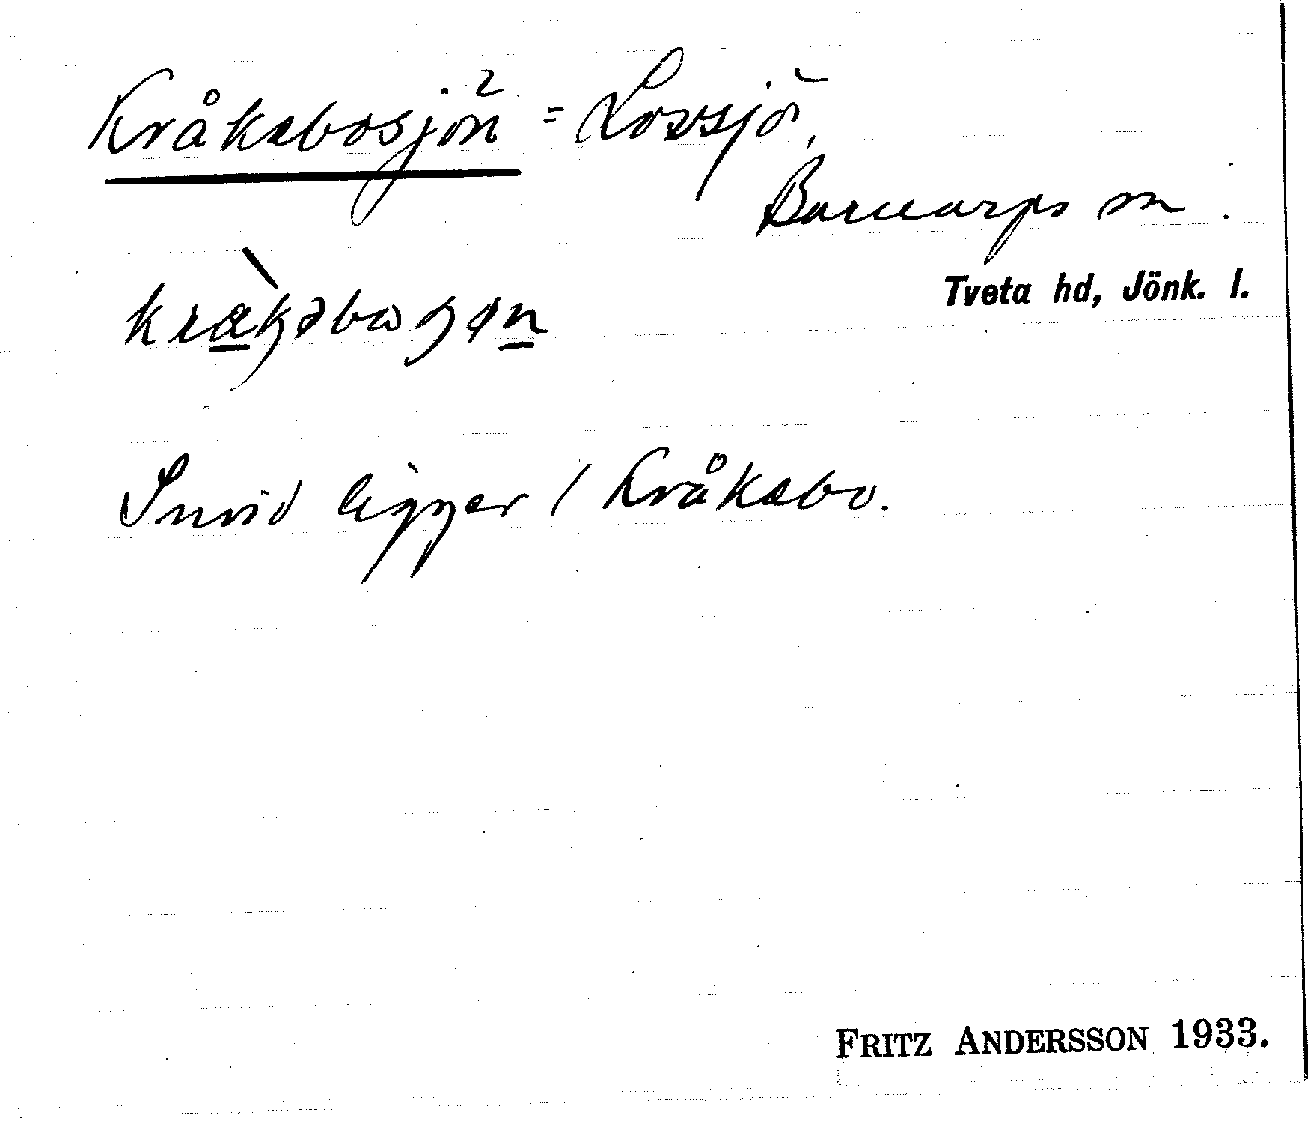 Kråkebosjön² = Lovsjö,
Barnarps sn.
Tveta hd, Jönk. l.
Invid ligger / Kråkebo.
FRITZ ANDERSSON 1933.